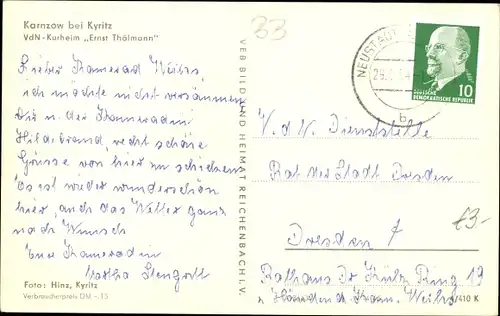 Karnzow bei Kyritz
VdN-Kurheim „Ernst Thälmann"
Lieber Kamerad Weibs,
ich möchte nicht versäumen
Dir u. der Kameradin
Hildebrand, recht schöne
Grüsse von hier zu schicken.
Es ist wieder wunderschön
hier, auch das Wetter ganz
nach Wunsch
Eure Kameradin
Foto: Hinz, Kyritz
Verbraucherpreis DM –,15
VEB BILD UND HEIMAT REICHENBACH I. V.
33
NEUSTADT
b
10
DEUTSCHE
DEMOKRATISCHE REPUBLIK
V.d.N. Dienststelle
Rat der Stadt Dresden
Dresden
Rathaus Dr. Külz Ring 19
z. Händen d. Kam. Weibs
£3-
/410 K